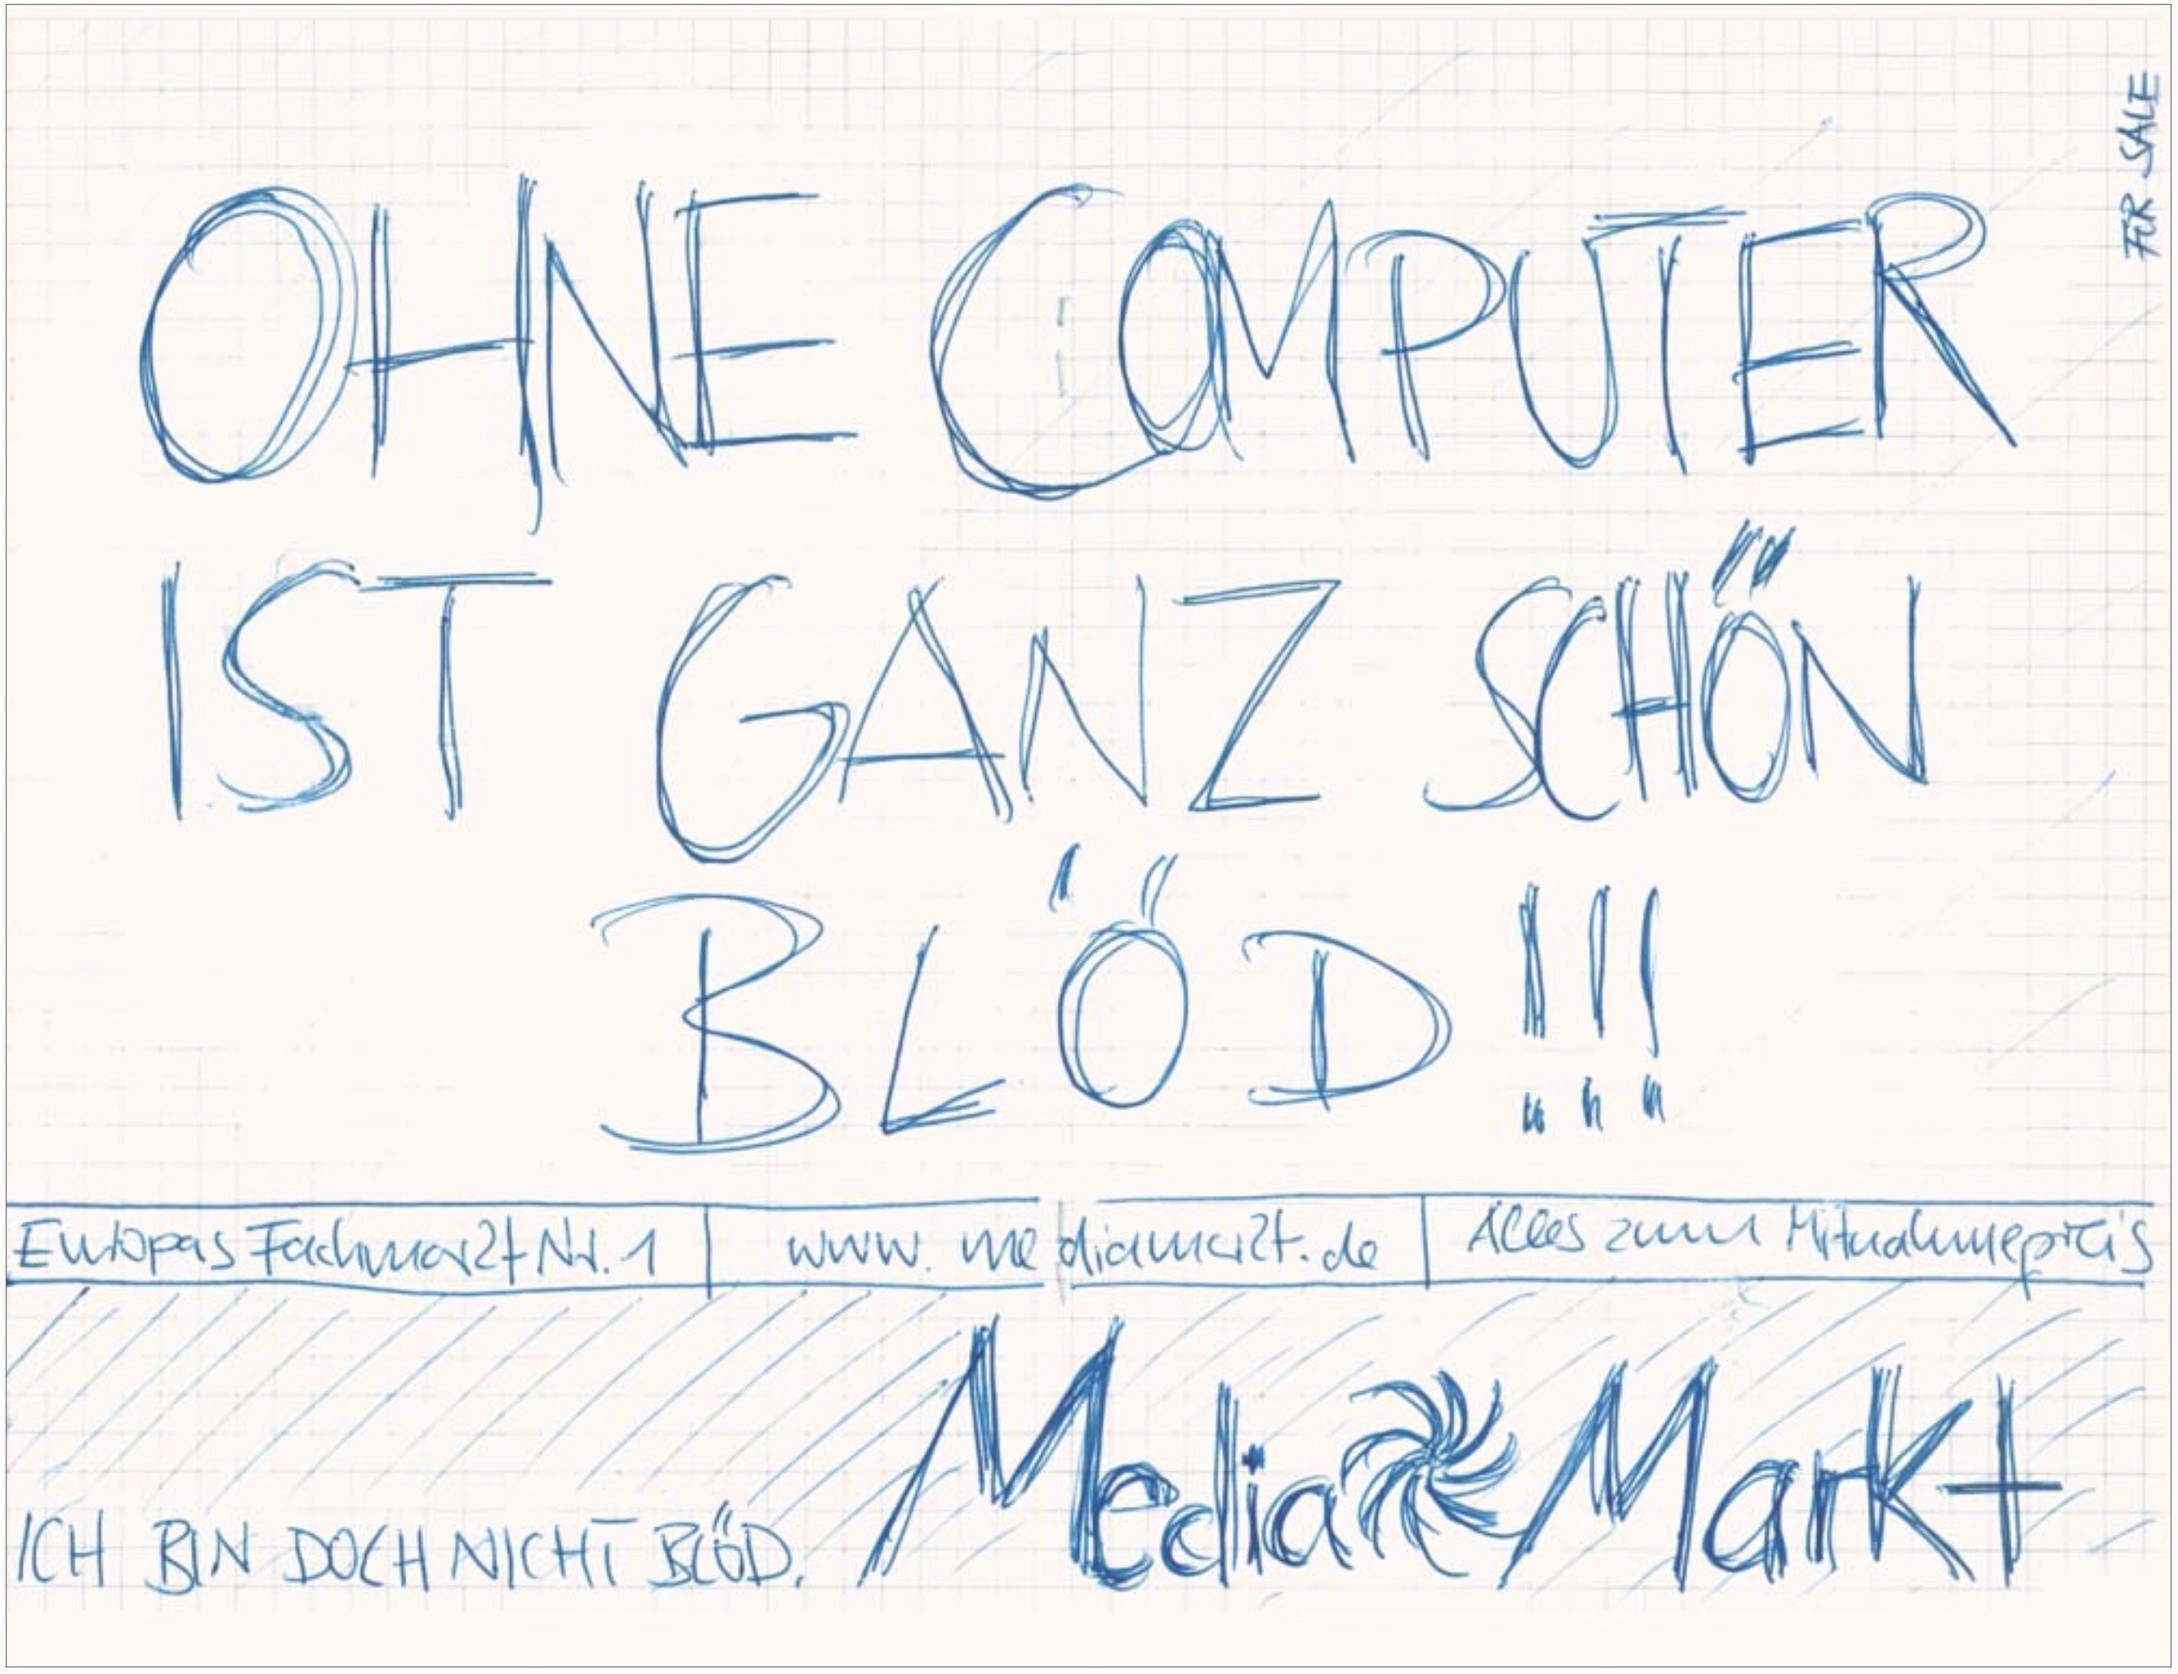 FÜR SALE
OHNE COMPUTER
IST GANZ SCHÖN
BLÖD!!!
Europas Fachmarkt Nr. 1 | www.mediamarkt.de | Alles zum Mitnahmepreis
Media Markt
ICH BIN DOCH NICHT BLÖD.